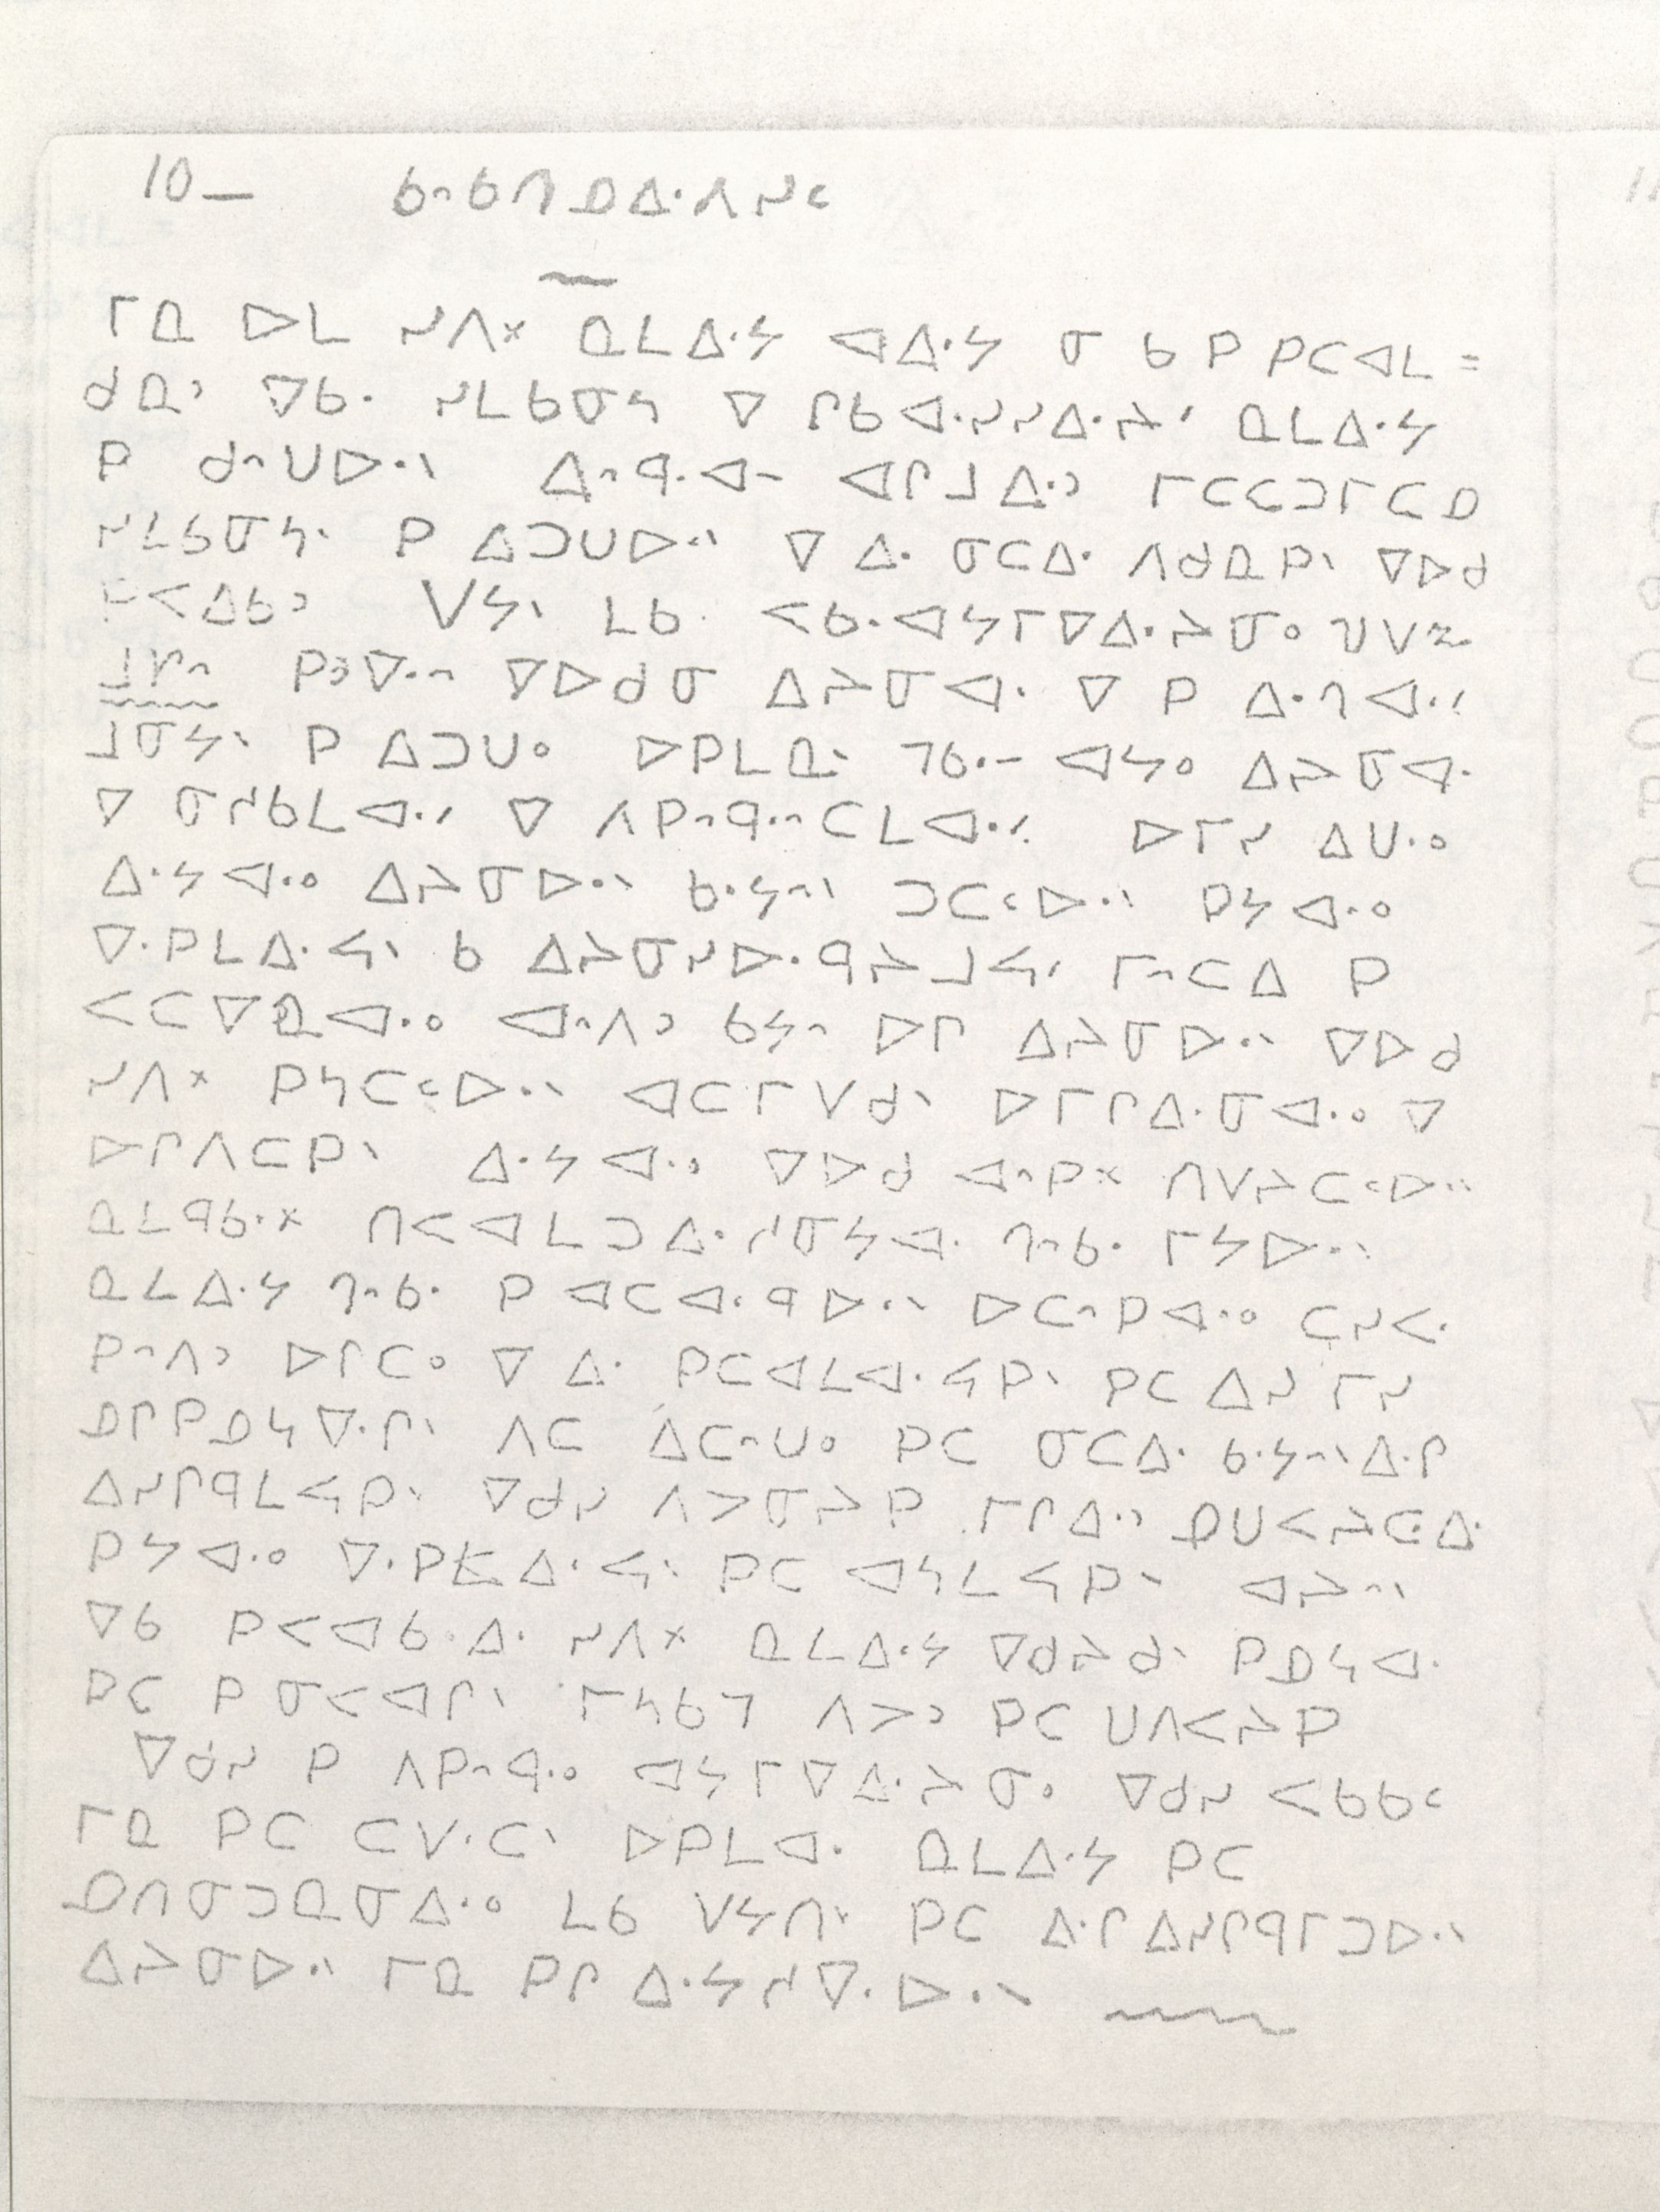 10— ᑲᐢᑲᑎᓄᐃᐧᐱᓯᑦ
ᒥᓇ ᐅᒪ ᓯᐱᕽ ᓇᒪᐃᐧᔭ ᐊᐃᐧᔭ ᓂ ᑲ ᑭ ᑭᑕᐊᒪ=
ᑯᓇᐣ ᐁᑲᐧ ᓯᒪᑲᓂᓴ ᐁ ᒋᑲᐊᐧᓯᓯᐃᐧᔨᐟ ᓇᒪᐃᐧᔭ
ᑭ ᑯᐢᑌᐅᐧᐠ ᐃᐢᑫᐧᐊᐧ ᐊᒋᒧᐃᐧᐣ ᒥᑕᑕᑐᒥᑕᓄ
ᓯᒪᑲᓂᓴᐠ ᑭ ᐃᑐᑌᐅᐧᐠ ᐁ ᐃᐧ ᓂᑕᐃᐧ ᐱᑯᓇᑭᐠ ᐁᐅᑯ
ᑭᐸᐃᑲᐣ ᐯᔭᐠ ᒪᑲ ᐸᑲᐧᐊᔭᒥᐁᐃᐧᔨᓂᐤ
ᑭᐁᐧᐢ ᐁᐅᑯᓂ ᐃᔨᓂᐊᐧ ᐁ ᑭ ᐃᐧᒉᐊᐧᐟ
ᒧᓂᔭᐠ ᑭ ᐃᑐᑌᐤ ᐅᑭᒪᓇᐠ ᒣᑲᐧᐨ ᐊᔭᐤ ᐃᔨᓂᐊᐧ
ᐁ ᓂᓱᑲᒪᐊᐧᐟ ᐁ ᐱᑭᐢᑫᐧᐢᑕᒪᐊᐧᐟ ᐅᒥᓯ ᐃᑌᐧᐤ
ᐃᐧᔭᐊᐧᐤ ᐃᔨᓂᐅᐧᐠ ᑲᐧᔭᐢᐠ ᑐᑕᑦᐅᐧᐠ ᑭᔭᐊᐧᐤ
ᐁᐧᑭᒪᐃᐧᔦᐠ ᑲ ᐃᔨᓂᓯᐅᐧᑫᔨᒧᔦᐠ ᒥᐢᑕᐃ ᑭ
ᐸᑕᐁᓇᐊᐧᐤ ᐊᐢᐱᐣ ᑲᔭᐢ ᐅᒋ ᐃᔨᓂᐅᐧᐠ ᐁᐅᑯ
ᓯᐱᕽ ᑭᓴᑕᑦᐅᐧᐠ ᐊᑕᒥᐯᑯᐠ ᐅᒥᒋᐃᐧᓂᐊᐧᐤ ᐁ
ᐅᒋᐱᑕᑭᐠ ᐃᐧᔭᐊᐧᐤ ᐁᐅᑯ ᐊᐢᑭᕽ ᑎᐯᔨᑕᑦᐅᐧᐠ
ᓇᒪᑫᑲᐧᕽ ᑎᐸᐊᒪᑐᐃᐧᓱᓂᔭᐊᐧ ᒉᐢᑲᐧ ᒥᔭᐅᐧᐠ
ᓇᒪᐃᐧᔭ ᒉᐢᑲᐧ ᑭ ᐊᑕᐊᐧᑫᐅᐧᐠ ᐅᑕᐢᑭᐊᐧᐤ ᑕᓯᐸᐧ
ᑭᐢᐱᐣ ᐅᒋᑕᐤ ᐁ ᐃᐧ ᑭᑕᐊᒪᐊᐧᔦᑭᐠ ᑭᑕ ᐃᓯ ᒥᓯ
ᓄᒋᑭᓄᓴᐁᐧᒋᐠ ᐱᑕ ᐃᑕᐢᑌᐤ ᑭᑕ ᓂᑕᐃᐧ ᑲᐧᔭᐢᐠᐃᐧᒋ
ᐃᓯᒋᑫᒪᔦᑭᐠ ᐁᑯᓯ ᐱᐳᓂᔨᑭ ᒥᒋᐃᐧᐣ ᓄᑌᐸᔨᑕᐧᐃᐧ
ᑭᔭᐊᐧᐤ ᐁᐧᑭᒪᐃᐧᔦᐠ ᑭᑕ ᐊᓴᒪᔦᑭᐠ ᐊᔨᐢᐠ
ᐁᑲ ᑭᐸᐊᑲᐧᐃᐧ ᓯᐱᕽ ᓇᒪᐃᐧᔭ ᐁᑯᔨᑯᐠ ᑭᓄᓴᐊᐧ
ᑭᑕ ᑭ ᓂᐸᐊᒋᐠ ᒥᓴᑲᒣ ᐱᐳᐣ ᑭᑕ ᑌᐱᐸᔨᑭ
ᐁᑯᓯ ᑭ ᐱᑭᐢᑫᐧᐤ ᐊᔭᒥᐁᐃᐧᔨᓂᐤ ᐁᑯᓯ ᐸᑲᑲᑦ
ᒥᓇ ᑭᑕ ᑕᐯᐧᑕᐠ ᐅᑭᒪᐊᐧ ᓇᒪᐃᐧᔭ ᑭᑕ
ᓄᑎᓂᑐᓇᓂᐃᐧᐤ ᒪᑲ ᐯᔭᑎᐠ ᑭᑕ ᐃᐧᒋ ᐃᓯᒋᑫᒥᑐᐅᐧᐠ
ᐃᔨᓂᐅᐧᐠ ᒥᓇ ᑭᒋ ᐃᐧᔭᓱᐁᐧᐅᐧᐠ